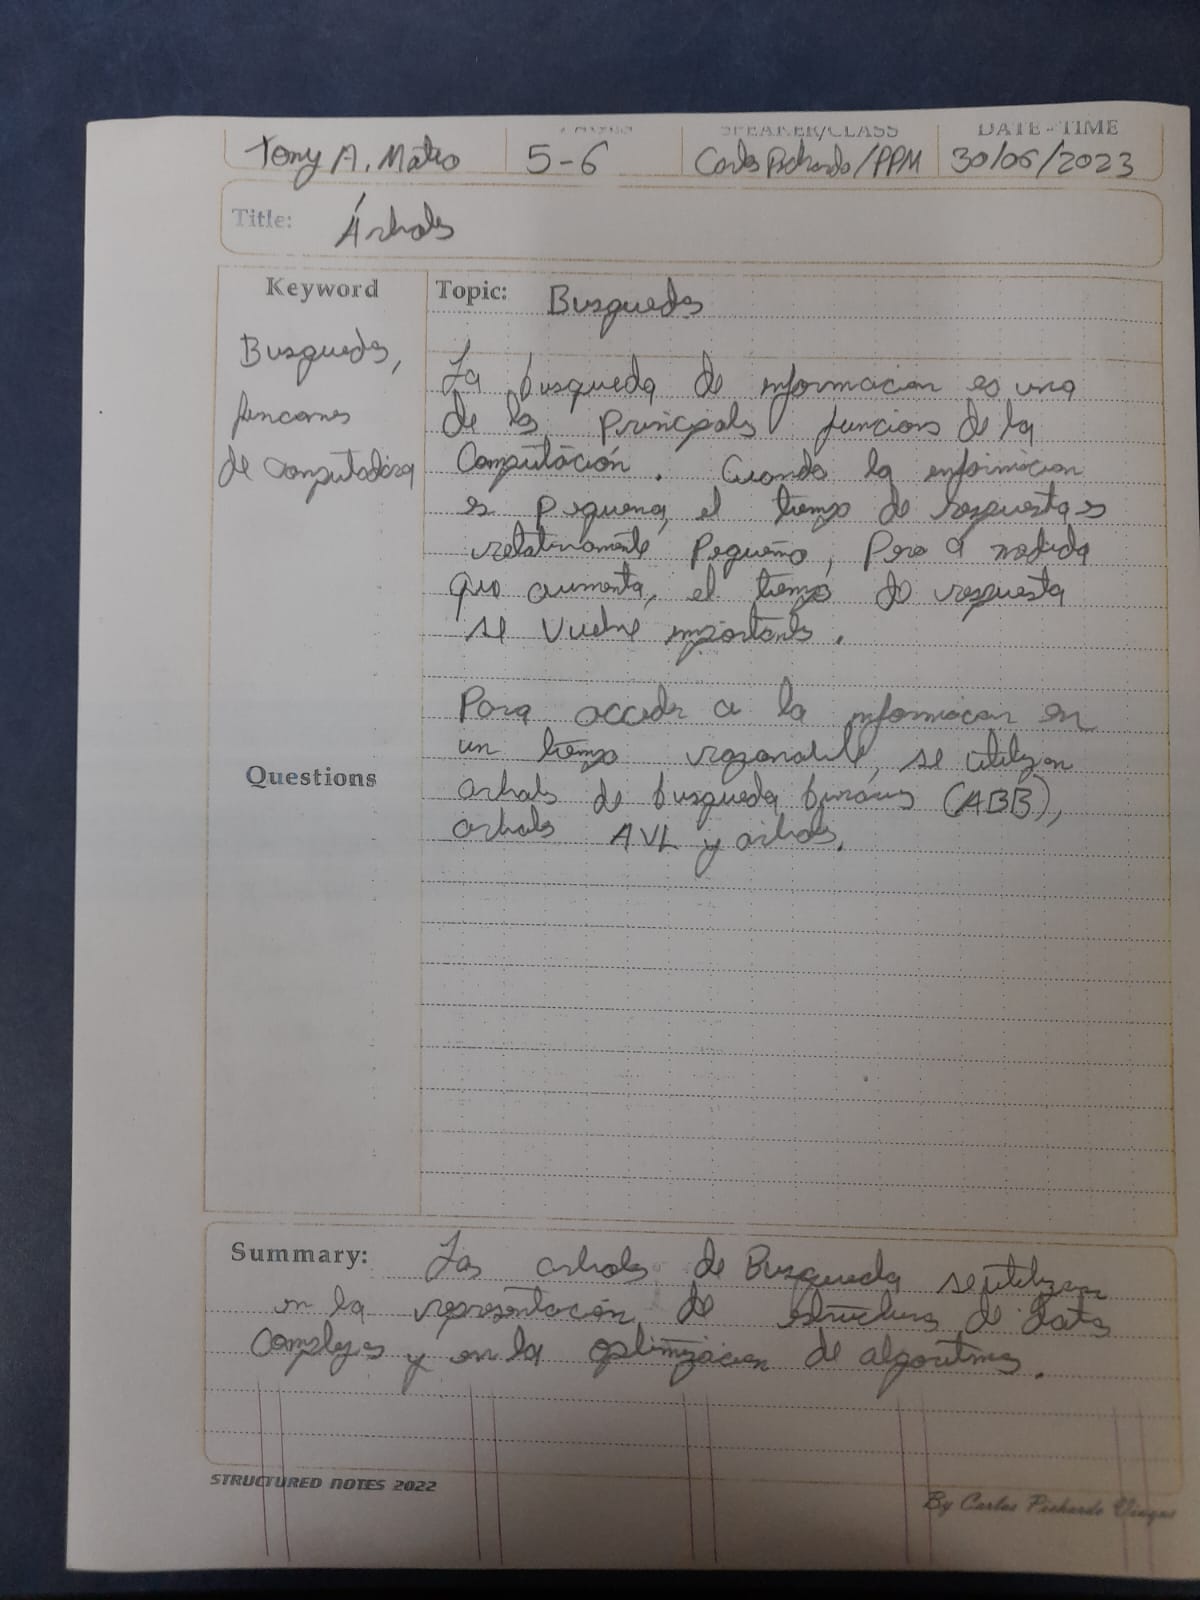 SPEAKER/CLASS
DATE-TIME
Tony A. Mateo
5-6
Carlos Pichardo/PPM
30/06/2023
Title: Árboles
Keyword
Busqueda,
funciones
de computadora
Topic: Busqueda
La busqueda de informacion es una
de las principales funciones de la
Computación. Cuando la informacion
es pequeña, el tiempo de respuesta es
relativamente pequeño, pero a medida
que aumenta, el tiempo de respuesta
se vuelve importante.
Para acceder a la informacion en
un tiempo razonable, se utilizan
arboles de busqueda binarios (ABB),
arboles AVL y arboles.
Questions
Summary: Los arboles de Busqueda se utilizan
en la representación de estructuras de datos
complejas y en la optimizacion de algoritmos.
STRUCTURED NOTES 2022
By Carlos Pichardo Viuque